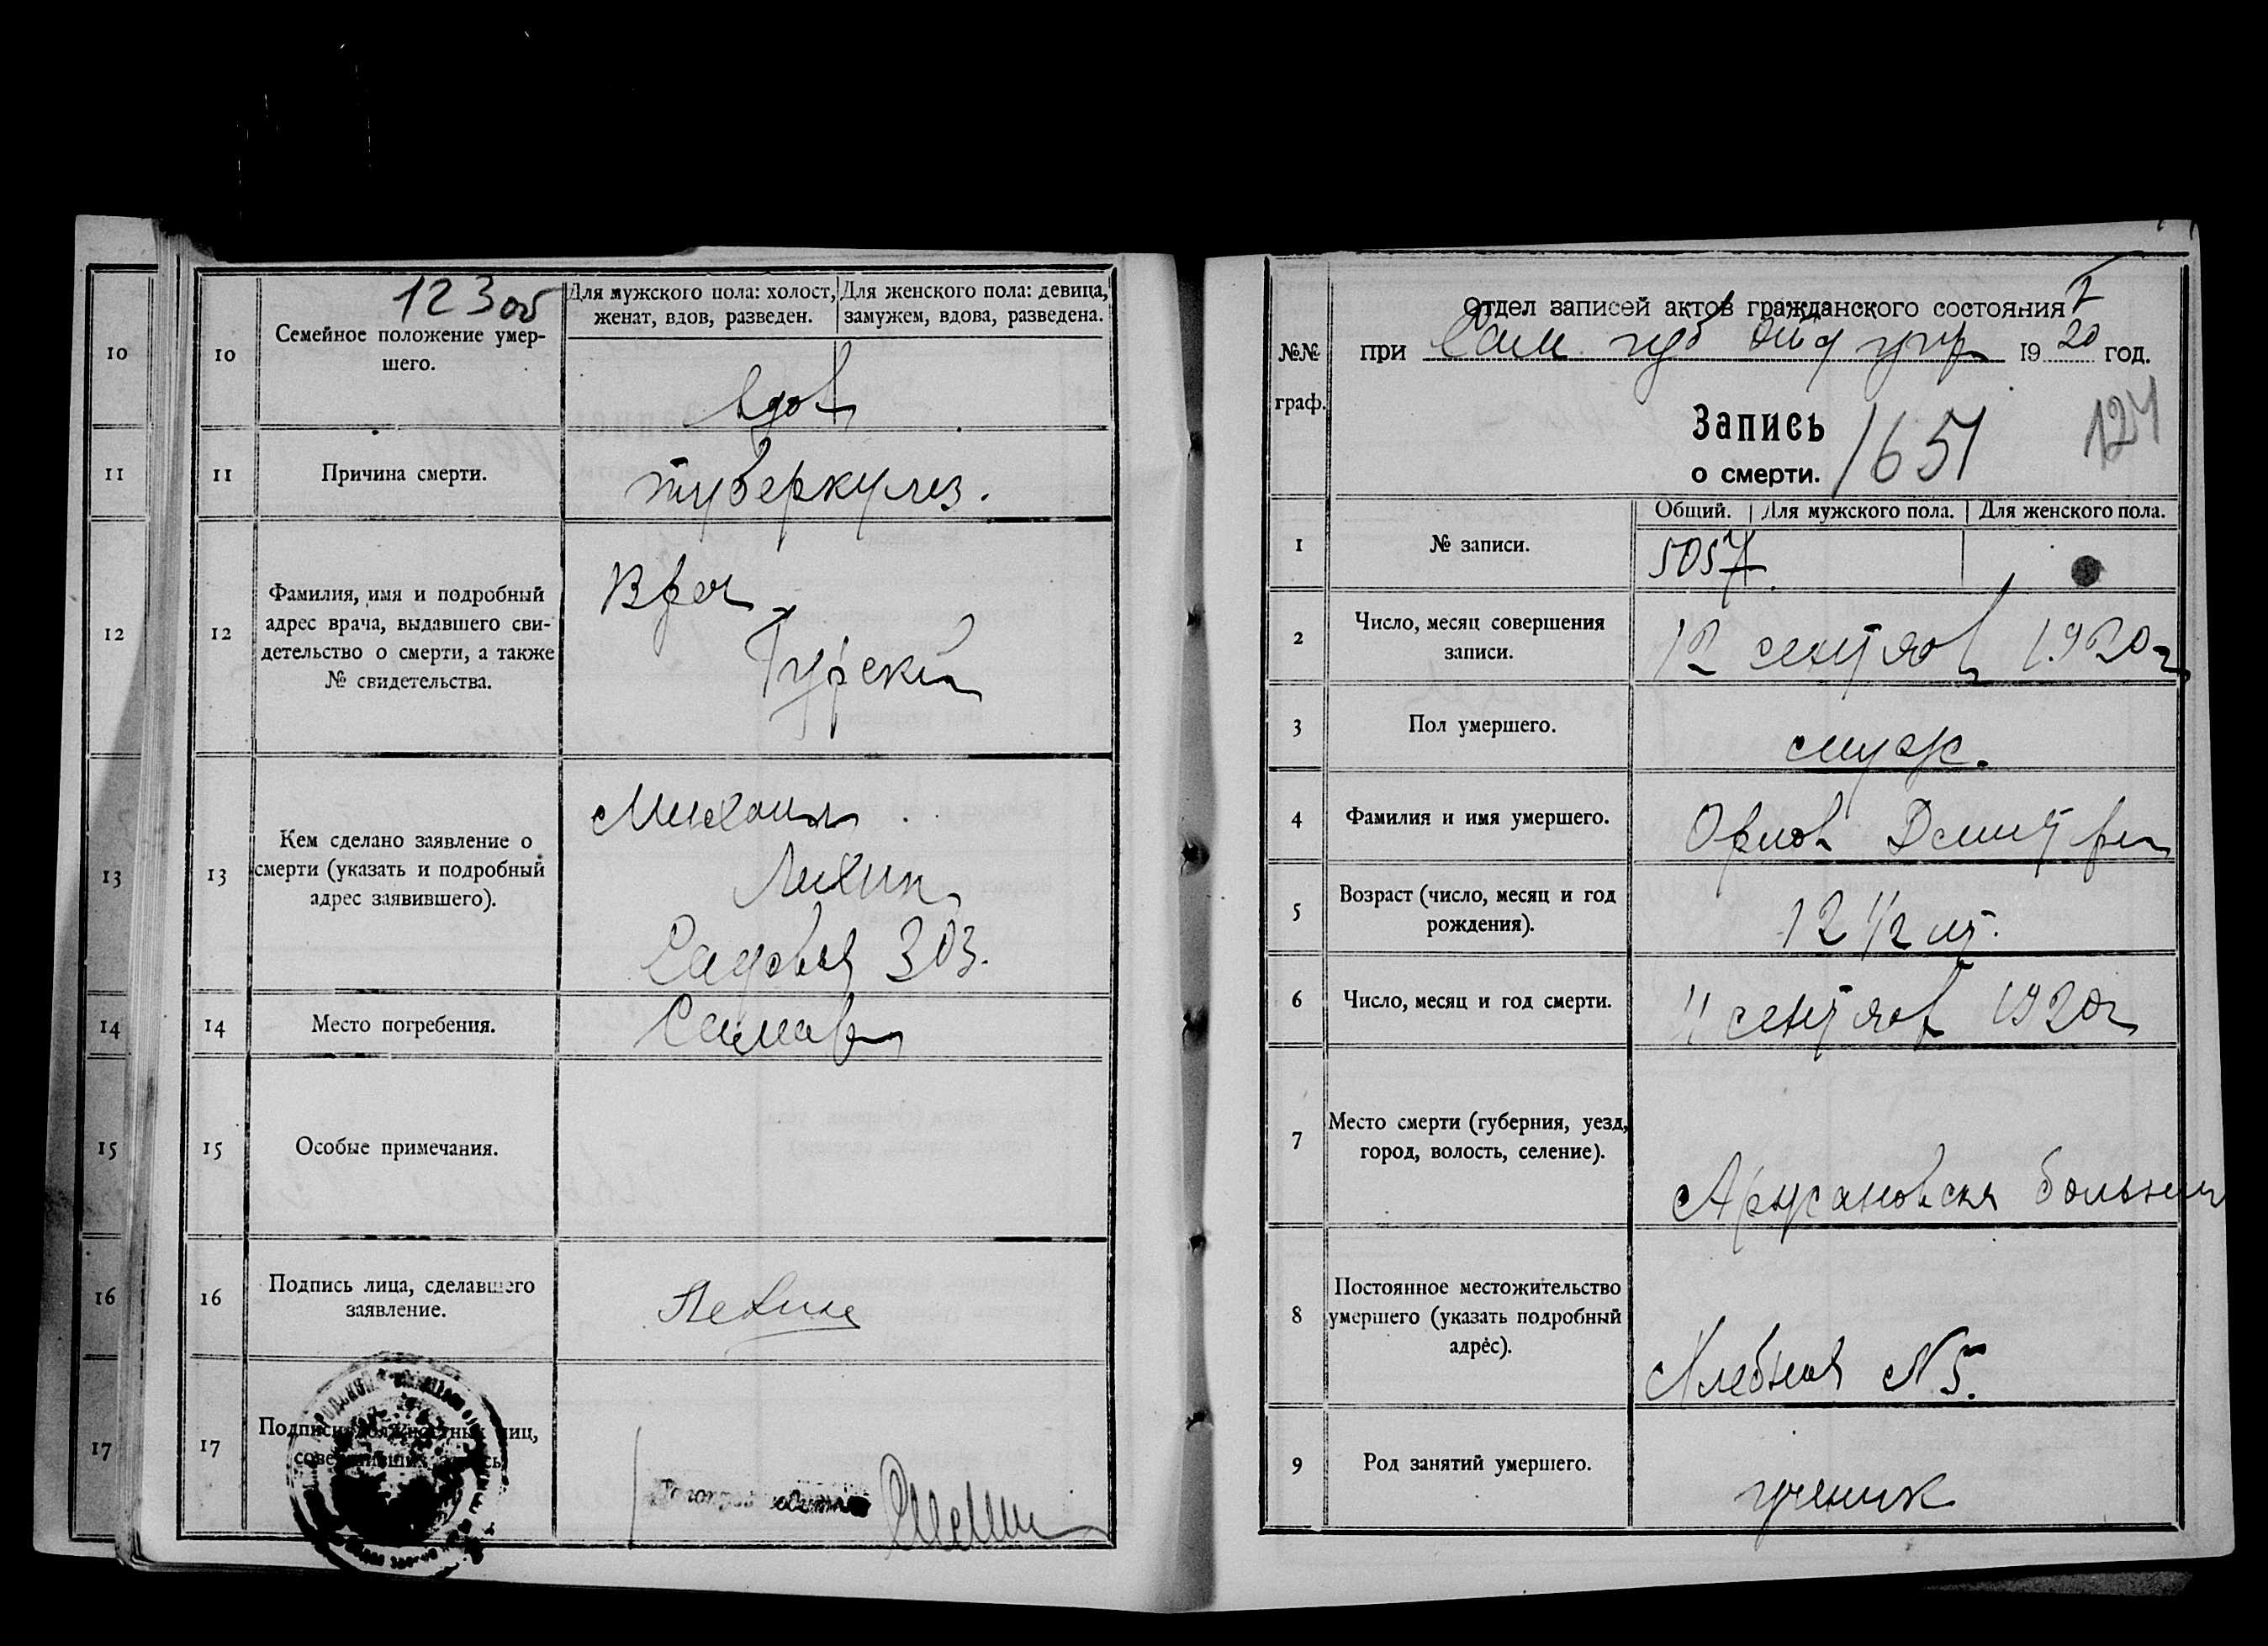 10
11
12
13
14
15
16
17
123 об
10
Семейное положение умер-
шего.
Для мужского пола: холост,
женат, вдов, разведен.
Для женского пола: девица,
замужем, вдова, разведена.
вдов
11
Причина смерти.
туберкулез.
12
Фамилия, имя и подробный
адрес врача, выдавшего сви-
детельство о смерти, а также
№ свидетельства.
Врач
Гурский
13
Кем сделано заявление о
смерти (указать и подробный
адрес заявившего).
Михаил
Лихин
Садовая 303.
14
Место погребения.
Самара
15
Особые примечания.
16
Подпись лица, сделавшего
заявление.
17
Подписи должностных лиц,
совершивших запись
Отдел записей актов гражданского состояния
при Сам губ отд упр 1920 год.
№№
граф.
Запись 1651
о смерти.
124
Общий.
Для мужского пола.
Для женского пола.
1
№ записи.
5057
2
Число, месяц совершения
записи.
12 сентяб 1920г
3
Пол умершего.
муж.
4
Фамилия и имя умершего.
Орлов Дмитри
5
Возраст (число, месяц и год
рождения).
12 1/2 лт.
6
Число, месяц и год смерти.
11 сентяб 1920г
7
Место смерти (губерния, уезд,
город, волость, селение).
Аржановская больниц
8
Постоянное местожительство
умершего (указать подробный
адрес).
Хлебная № 5.
9
Род занятий умершего.
ученик